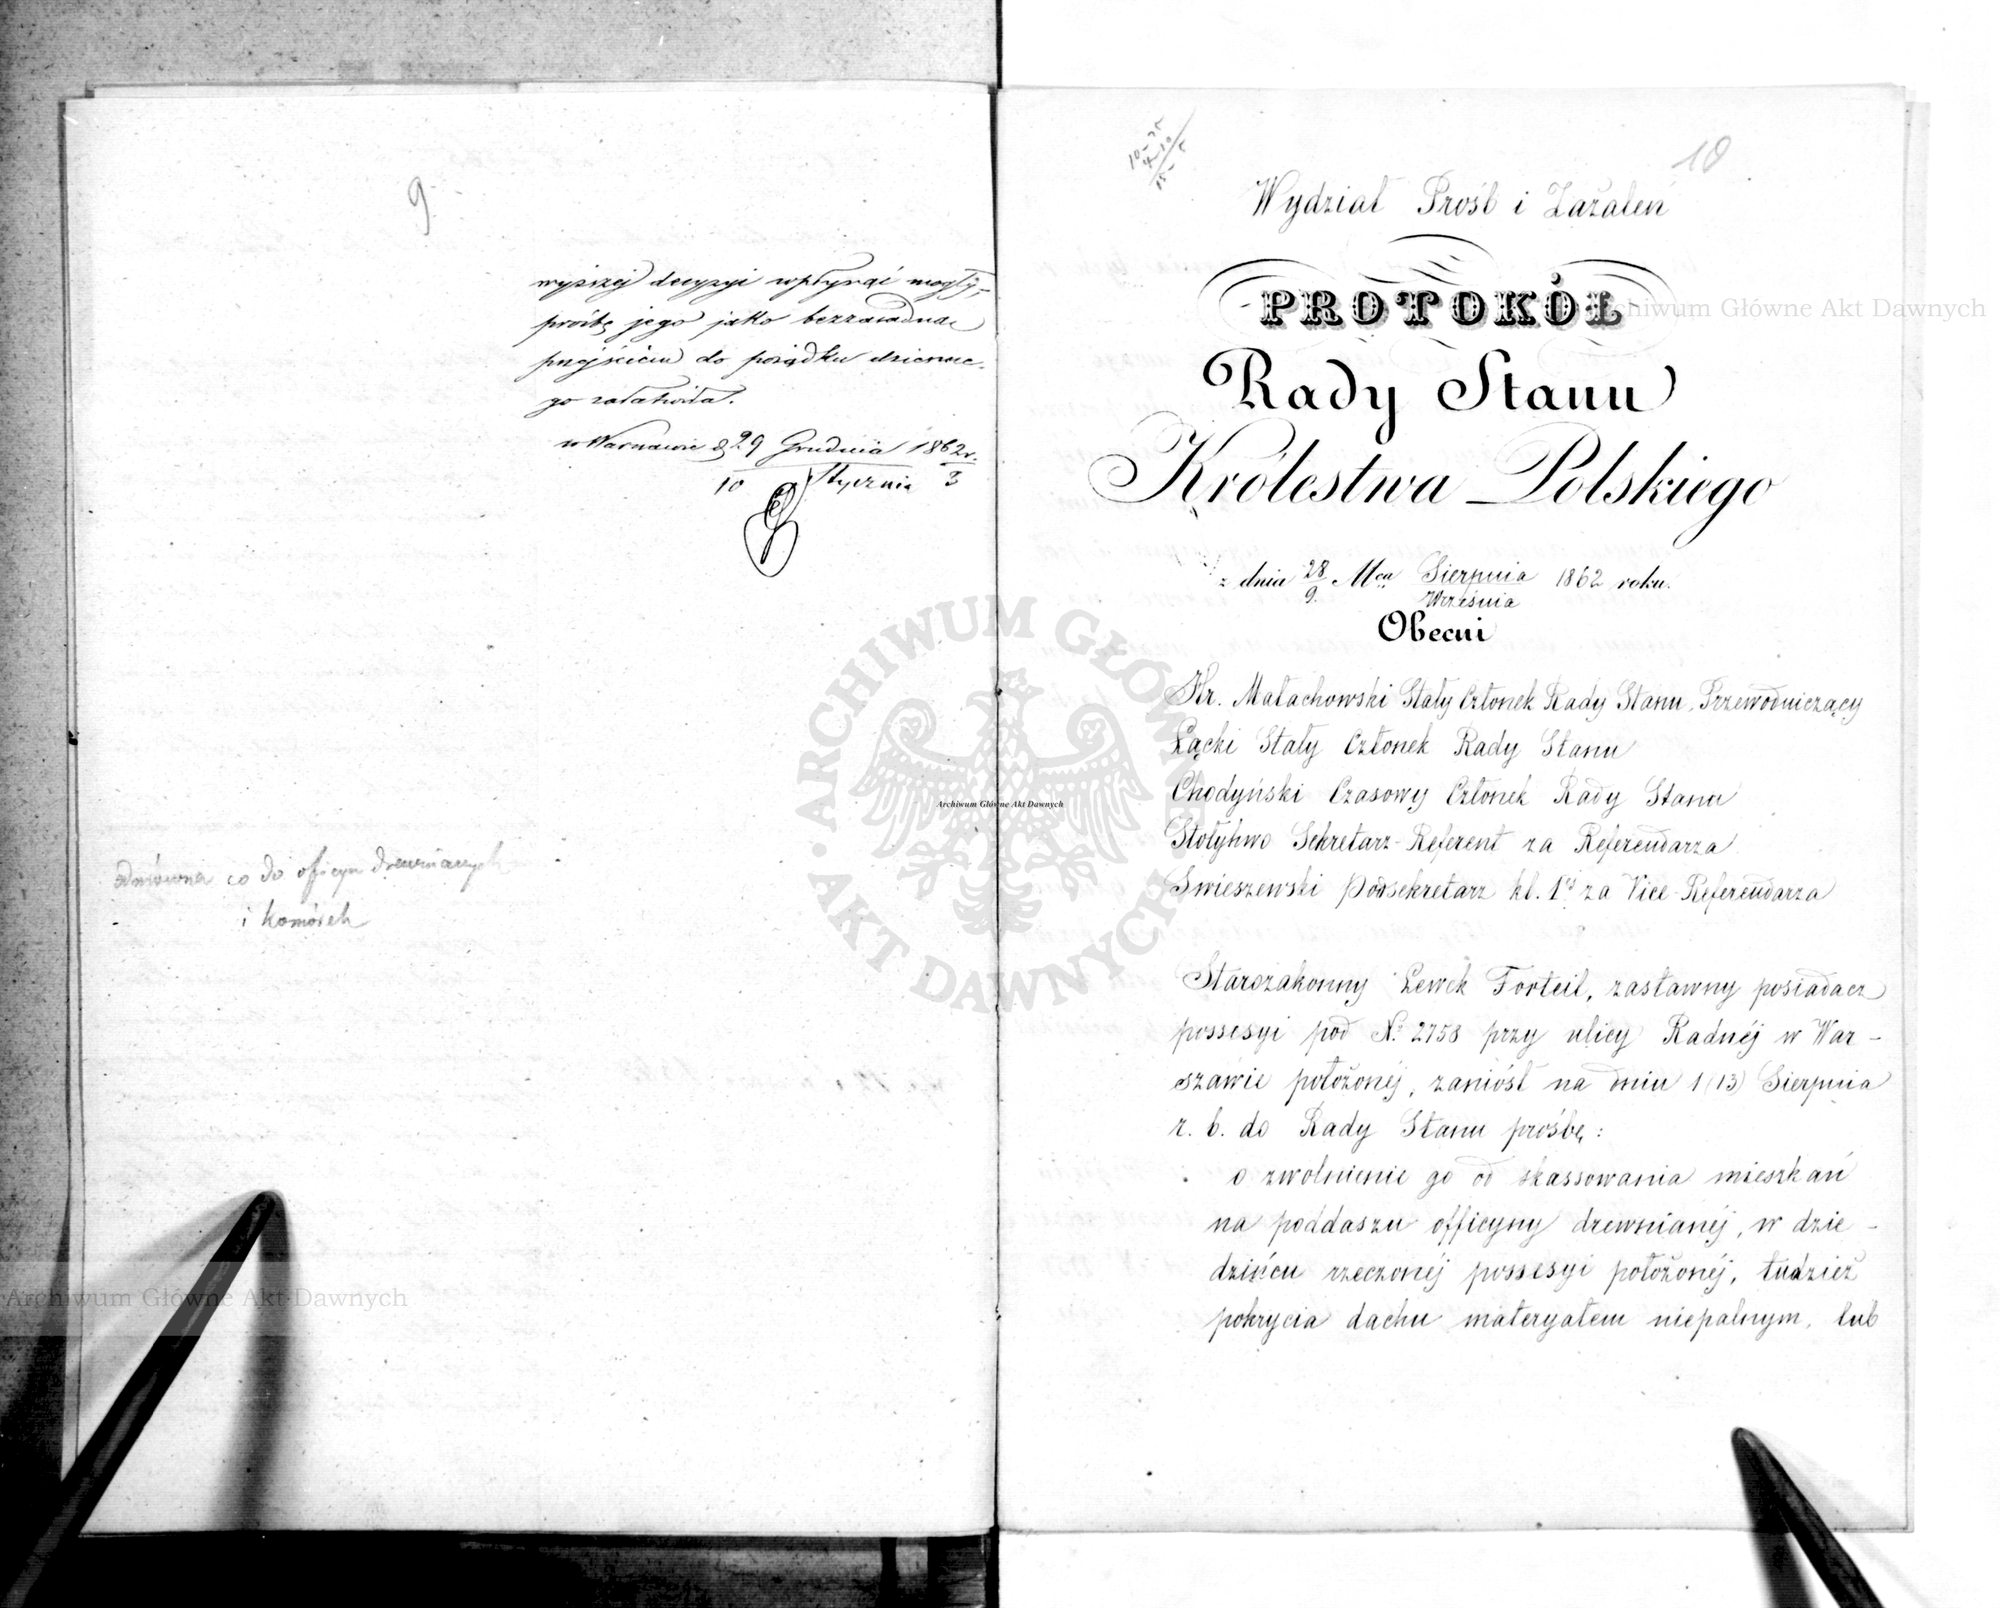 9
wyższej decyzyi wpłynąć mogły,
prośbę jego jako bezzasadną
przejściem do porządku dzienne-
go załatwiła.
w Warszawie d. 29 Grudnia 1862 r.
10 Stycznia 3
odmówna co do oficyn drewnianych
i komórek
10
Wydział Prośb i Zażaleń
PROTOKÓŁ
Rady Stanu
Królestwa Polskiego
z dnia 28 Mca Sierpnia 1862 roku.
9. Września
Obecni
Hr. Małachowski Stały Członek Rady Stanu, Przewodniczący
Łącki Stały Członek Rady Stanu
Chodyński Czasowy Członek Rady Stanu
Stołyhwo Sekretarz-Referent za Referendarza
Swieszewski Podsekretarz kl. 1éj za Vice-Referendarza
Starozakonny Lewek Forteil, zastawny posiadacz
possesyi pod No 2758 przy ulicy Radnéj w War-
szawie położonéj, zaniósł na dniu 1 (13) Sierpnia
r. b. do Rady Stanu prośbę:
o zwolnienie go od skassowania mieszkań
na poddaszu officyny drewnianéj, w dzie-
dzińcu rzeczonéj possesyi położonéj, tudzież
pokrycia dachu materyałem niepalnym, lub
Archiwum Główne Akt Dawnych
Archiwum Główne Akt Dawnych
Archiwum Główne Akt Dawnych
ARCHIWUM GŁÓWNE AKT DAWNYCH